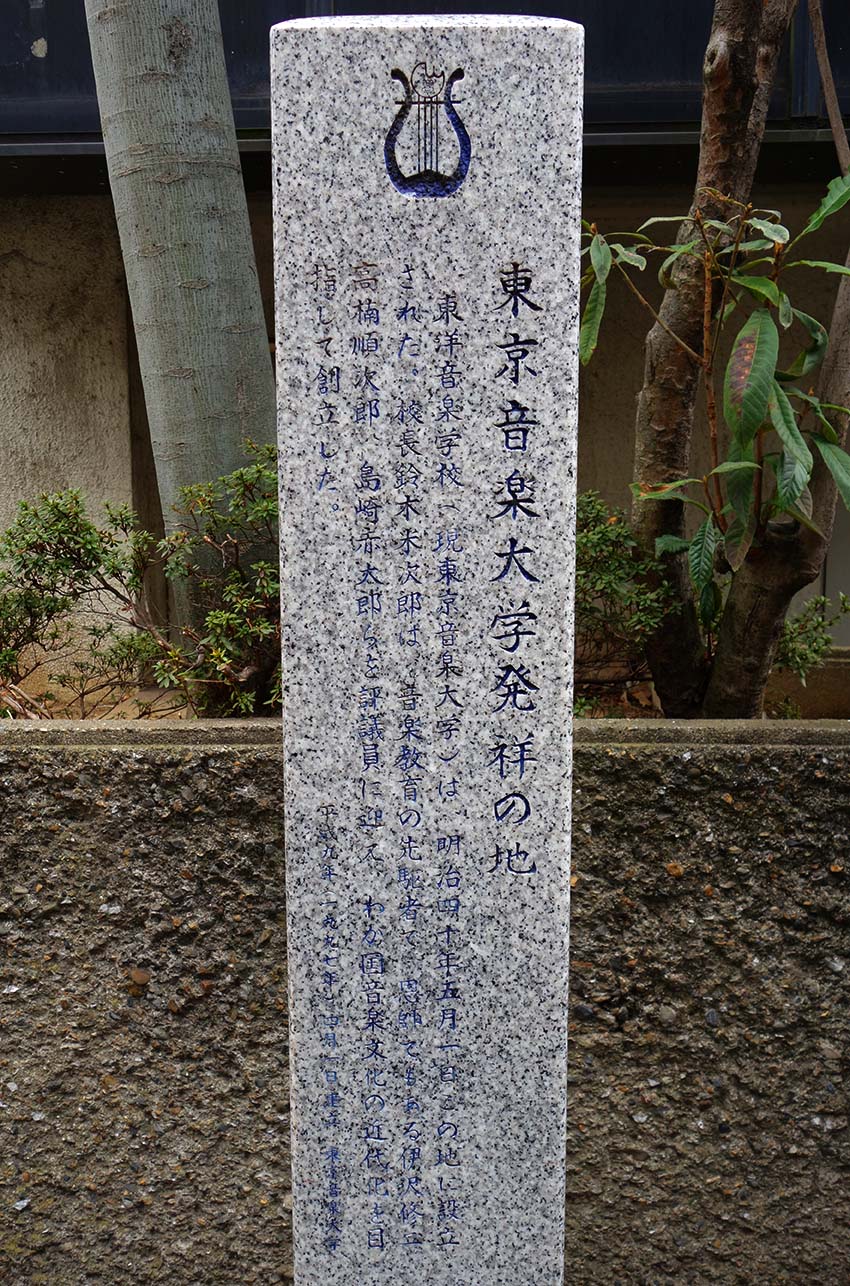 東京音楽大学発祥の地
東洋音楽学校(現東京音楽大学)は、明治四十年五月一日この地に設立
された。校長鈴木米次郎は、音楽教育の先駆者で、恩師でもある伊沢修二、
高楠順次郎、島崎赤太郎らを評議員に迎え、わが国音楽文化の近代化を目
指して創立した。
平成九年(一九九七年)四月一日建立 東京音楽大学